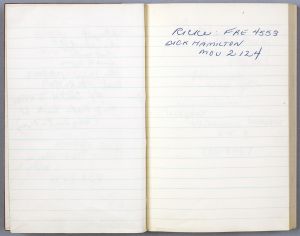 : FRE 4553
DICK HAMILTON
MOU 2124